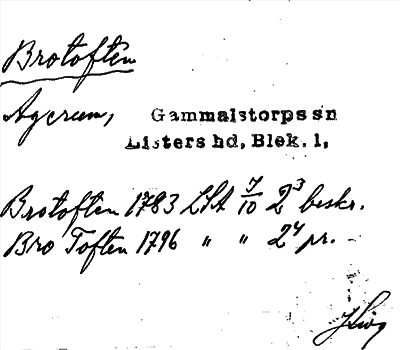 Brotoften
Agerum,
Gammalstorps sn
Listers hd, Blek. l,
Brotoften 1783 LSA 7/10 2³ beskr.
Bro Toften 1796 " " 2⁴ pr.